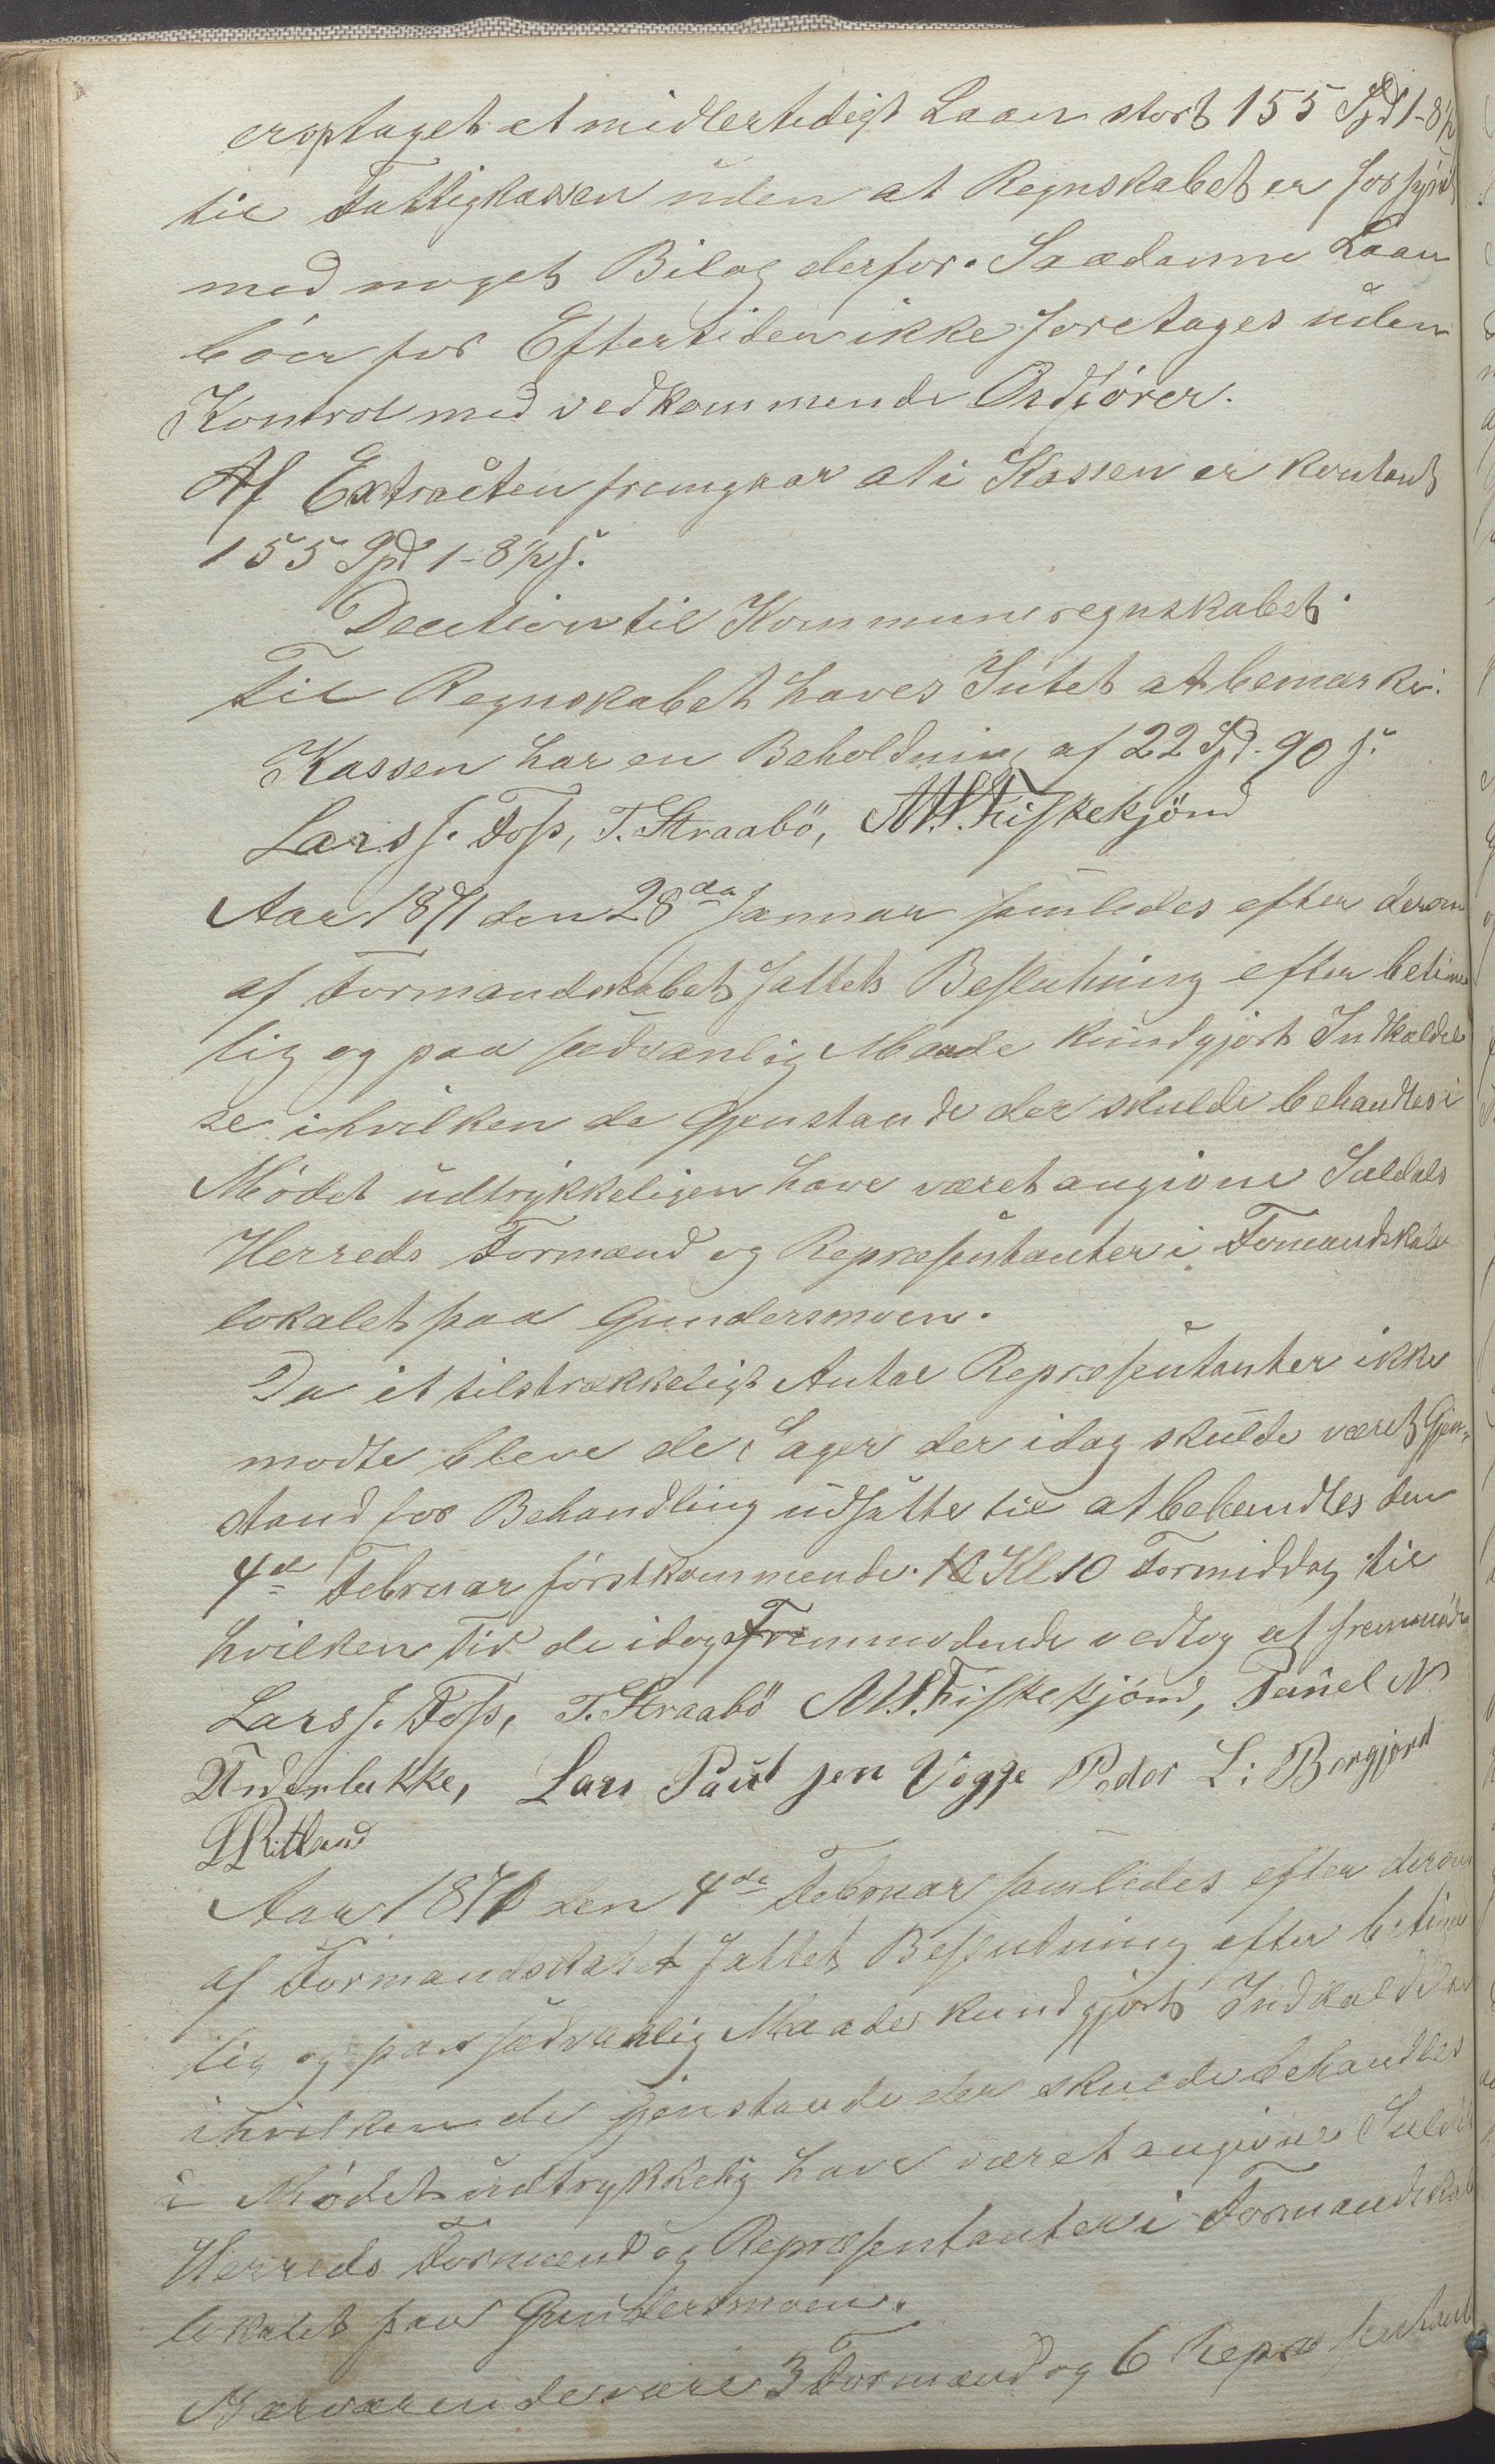 eroptaget et midlertidigt Laan stort 155 Spd 1-8½
til Fattigkassen uden at Regnskabet er forsynet
med noget Bilag derfor. Saadanne Laan
bóer for Eftertiden ikke foretages uden
Kontrol med vedkommende Ordförer.
Af Extracten fremgaar at i Kassen er kontant
155 Spd 1-8½ s.
Decition til Kommuneregnskabet.
Til Regnskabet haves Intet at bemærke.
Kassen har en Beholdning af 22 Spd. 90 s.
Lars J. Foss, T. Straabö, M.S. Fiskekjönd
Aar 1871 den 28de Januar samledes efter derom
af Formandskabet fattet Beslutning efter betime
lig og paa sædvanlig Maade kundgjort Indkaldel
se i hvilken de Gjenstande der skulde behandles i
Mödet udtrykkeligen have været angivne Suldals
Herreds Formænd og Repræsentanter i Formandskabs
lokalet paa Gundersmoen.
Da et tilstrækkeligt Antal Repræsentanter ikke
modte bleve de Sager der idag skulde været Gjen-
stand for Behandling udsatte til at behandles den
4de Februar förstkommende. Kl 10 Formiddag til
hvilken Tid de idag Fremmodende vedtog at fremmöde
Lars J. Foss, T. Straabö M.S. Fiskekjönd, Paúel N
Underbakke, Lars Paúl sen Vigge Peder L: Bergjord
L Ritland
Aar 1871 den 4de Februar samledes efter derom
af Formandskabet fattet Beslutning efter betime
lig og paa sædvanlig Maade kundgjort Indkaldelse
i hvilken de gjenstande der skulde behandles
i Mödet udtrykkelig have været angivne Suldals
Herreds Formænd og Repræsentanter i Formandskabs
lokalet paa Gundersmoen.
Nærværende vare 3 Formænd og 6 Repræsentant